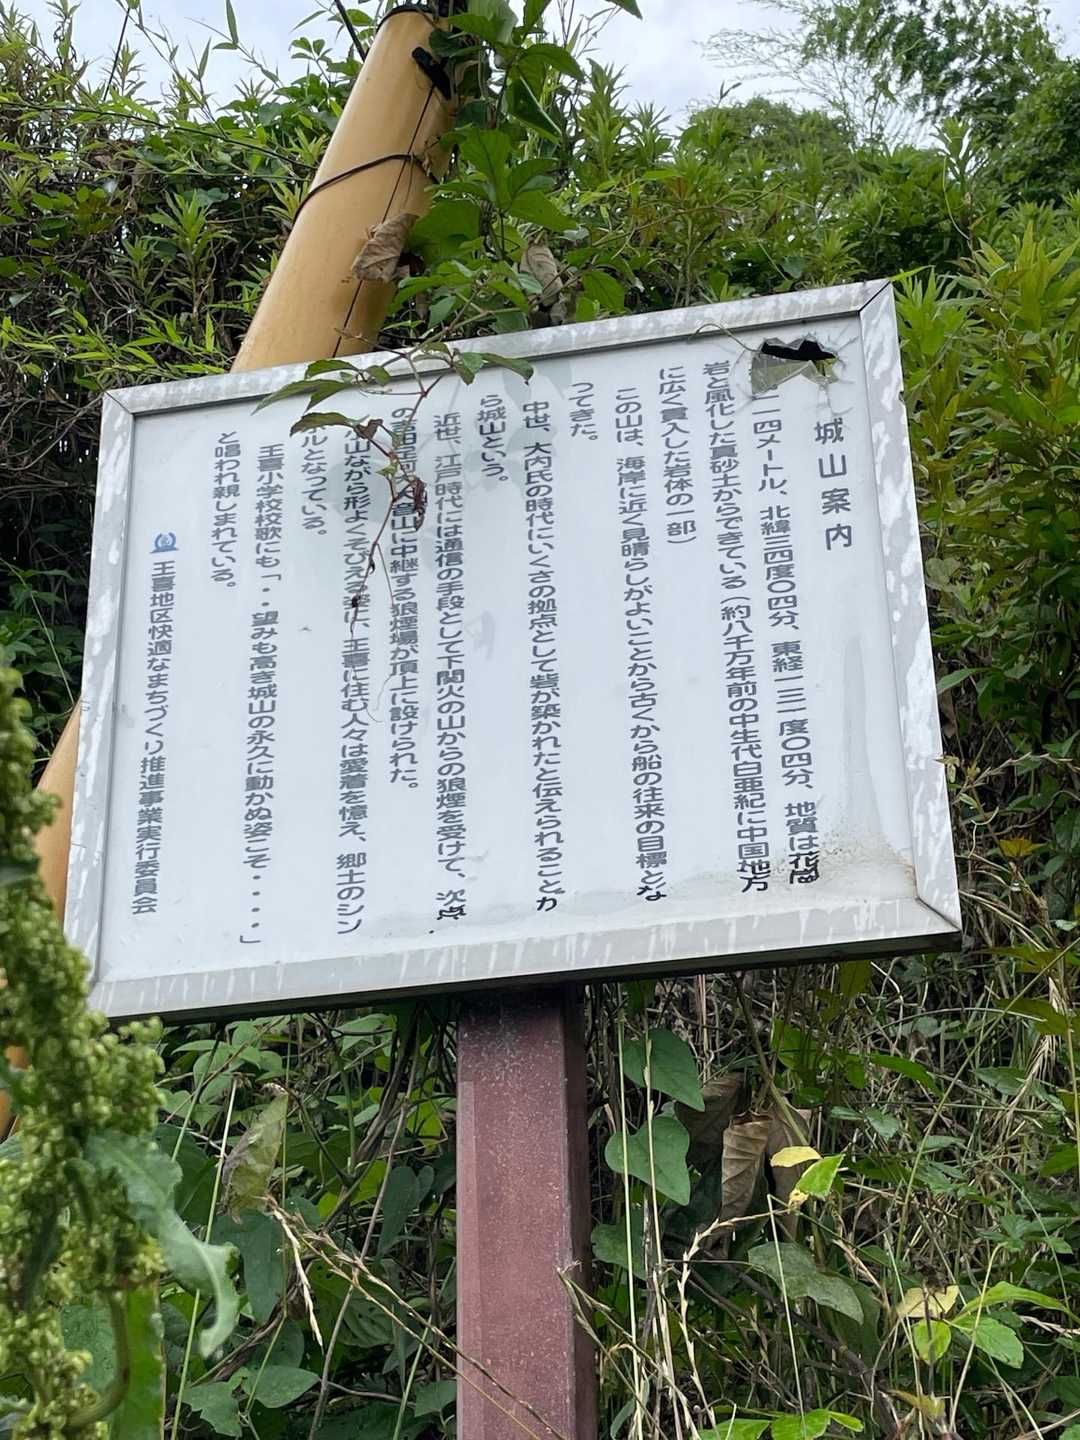 城山案内
一四メートル、北緯三四度〇四分、東経一三一度〇四分、地質は花崗
岩と風化した真砂土からできている（約八千万年前の中生代白亜紀に中国地方
に広く貫入した岩体の一部）
この山は、海岸に近く見晴らしがよいことから古くから船の往来の目標とな
ってきた。
中世、大内氏の時代にいくさの拠点として砦が築かれたと伝えられることか
ら城山という。
近世、江戸時代には通信の手段として下関火の山からの狼煙を受けて、次点
山に中継する狼煙場が頂上に設けられた。
小山ながら形よくそびえる姿に、王喜に住む人々は愛着を憶え、郷土のシン
ボルとなっている。
王喜小学校校歌にも「・・望みも高き城山の永久に動かぬ姿こそ・・・・」
と唱われ親しまれている。
王喜地区快適なまちづくり推進事業実行委員会